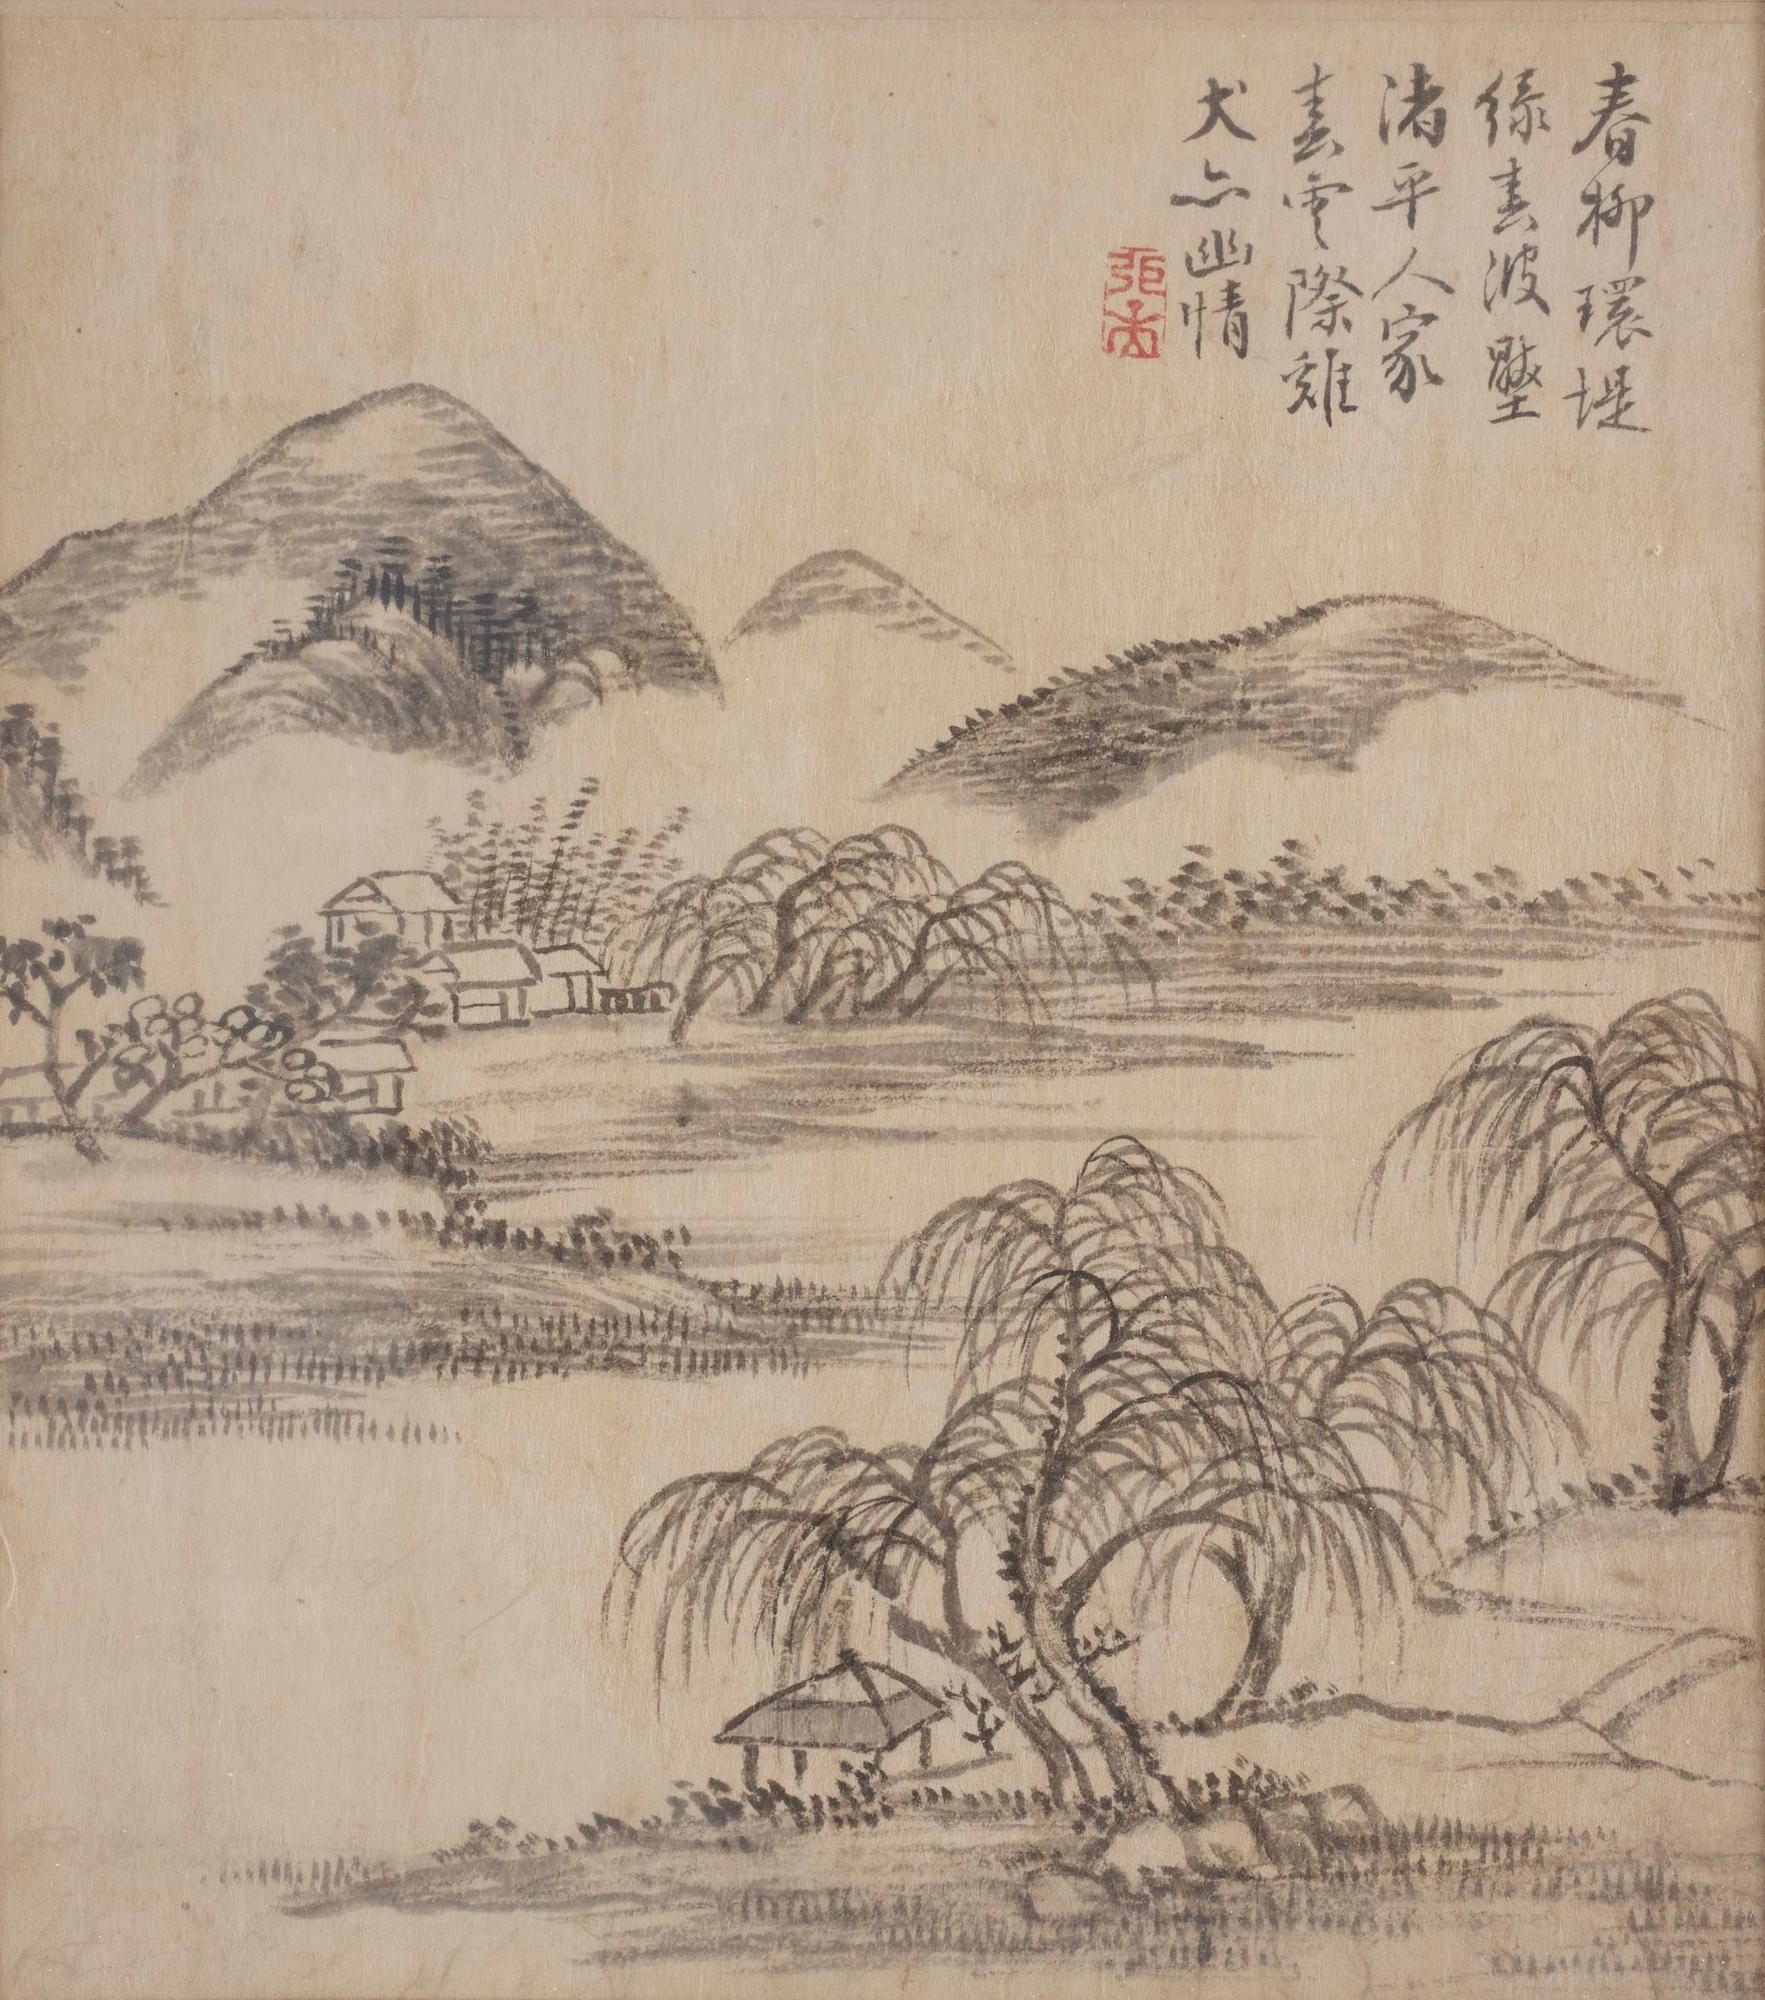 春柳環堤
綠春波
渚平人家
春雲際雞
犬亦幽情